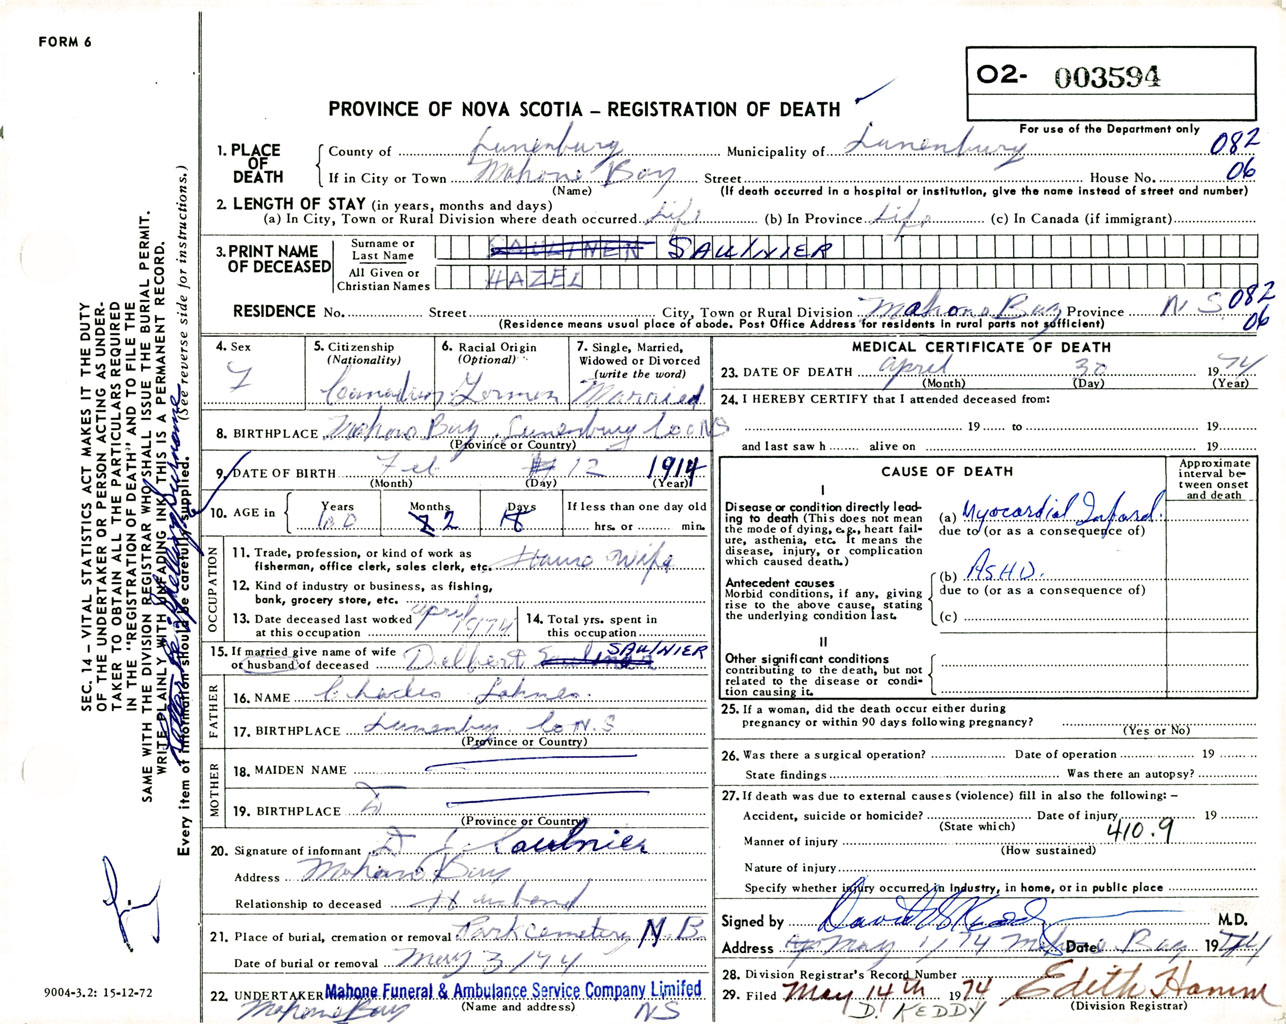 FORM 6
O2- 003594
PROVINCE OF NOVA SCOTIA – REGISTRATION OF DEATH
For use of the Department only
082
06
1. PLACE OF DEATH
County of Lunenburg Municipality of Lunenburg
If in City or Town Mahone Bay Street House No.
(Name) (If death occurred in a hospital or institution, give the name instead of street and number)
2. LENGTH OF STAY (in years, months and days)
(a) In City, Town or Rural Division where death occurred Life (b) In Province Life (c) In Canada (if immigrant)
3. PRINT NAME OF DECEASED
Surname or Last Name SAULNIER
All Given or Christian Names HAZEL
RESIDENCE No. Street City, Town or Rural Division Mahone Bay Province N S 082
06
(Residence means usual place of abode. Post Office Address for residents in rural parts not sufficient)
4. Sex F
5. Citizenship (Nationality) Canadian
6. Racial Origin (Optional) German
7. Single, Married, Widowed or Divorced (write the word) Married
8. BIRTHPLACE Mahone Bay Lunenburg Co NS
(Province or Country)
9. DATE OF BIRTH Feb 12 1914
(Month) (Day) (Year)
10. AGE in Years 60 Months 2 Days 18 If less than one day old
hrs. or min.
OCCUPATION
11. Trade, profession, or kind of work as fisherman, office clerk, sales clerk, etc. House Wife
12. Kind of industry or business, as fishing, bank, grocery store, etc.
13. Date deceased last worked at this occupation April 1974
14. Total yrs. spent in this occupation
15. If married give name of wife or husband of deceased Delbert SAULNIER
FATHER
16. NAME Charles Lohnes
17. BIRTHPLACE Lunenburg Co N.S
(Province or Country)
MOTHER
18. MAIDEN NAME
19. BIRTHPLACE
(Province or Country)
20. Signature of informant Saulnier
Address Mahone Bay
Relationship to deceased Husband
21. Place of burial, cremation or removal Park cemetery M.B.
Date of burial or removal May 3/74
22. UNDERTAKER Mahone Funeral & Ambulance Service Company Limited
(Name and address)
Mahone Bay NS
MEDICAL CERTIFICATE OF DEATH
23. DATE OF DEATH April 30 1974
(Month) (Day) (Year)
24. I HEREBY CERTIFY that I attended deceased from:
19 to 19
and last saw h alive on 19
CAUSE OF DEATH
Approximate interval between onset and death
I
Disease or condition directly leading to death (This does not mean the mode of dying, e.g., heart failure, asthenia, etc. It means the disease, injury, or complication which caused death.)
(a) Myocardial Infarct.
due to (or as a consequence of)
Antecedent causes
Morbid conditions, if any, giving rise to the above cause, stating the underlying condition last.
(b) ASHD.
due to (or as a consequence of)
(c)
II
Other significant conditions contributing to the death, but not related to the disease or condition causing it.
25. If a woman, did the death occur either during pregnancy or within 90 days following pregnancy?
(Yes or No)
26. Was there a surgical operation? Date of operation 19
State findings Was there an autopsy?
27. If death was due to external causes (violence) fill in also the following: –
Accident, suicide or homicide? Date of injury 19
(State which)
410.9
Manner of injury
(How sustained)
Nature of injury
Specify whether injury occurred in industry, in home, or in public place
Signed by David S Keddy M.D.
Address May 1/74 Mahone Bay Date 1974
28. Division Registrar's Record Number
29. Filed May 14th 1974 Edith Hamm
(Division Registrar)
D. KEDDY
SEC. 14 – VITAL STATISTICS ACT MAKES IT THE DUTY
OF THE UNDERTAKER OR PERSON ACTING AS UNDER-
TAKER TO OBTAIN ALL THE PARTICULARS REQUIRED
IN THE "REGISTRATION OF DEATH" AND TO FILE THE
SAME WITH THE DIVISION REGISTRAR WHO SHALL ISSUE THE BURIAL PERMIT.
WRITE PLAINLY WITH UNFADING INK. THIS IS A PERMANENT RECORD.
Every item of information should be carefully supplied. (See reverse side for instructions.)
9004-3.2: 15-12-72